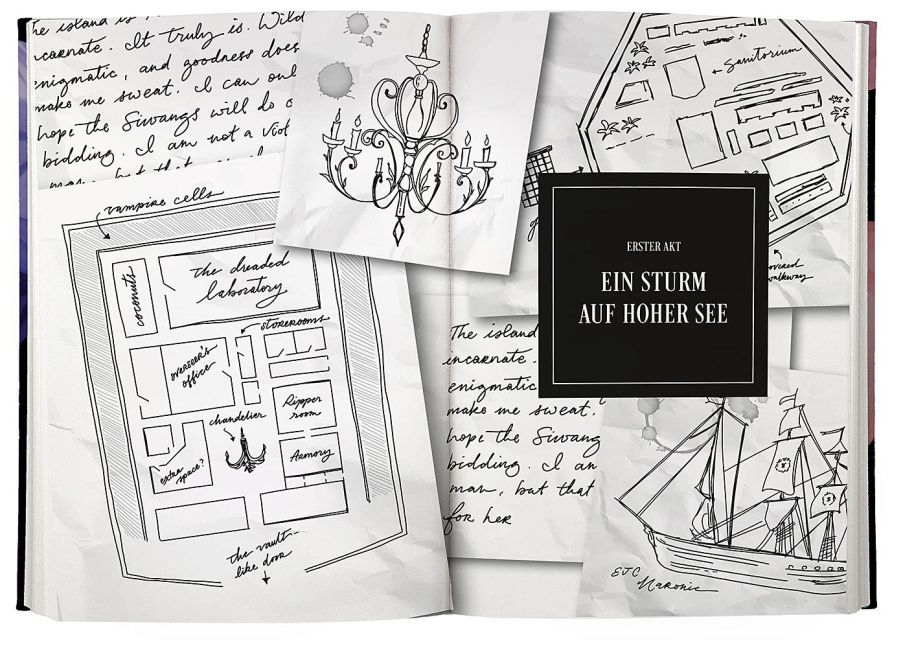 island is
incarnate. It truly is. Wild
enigmatic, and goodness does
make me sweat. I can
hope the Siwangs will do
bidding. I am not a
man, but that
vampire cells
coconuts
the dreaded
laboratory
storerooms
overseer's
office
Ripper
room
chandelier
Armory
extra
space?
the vault-
like door
Sanitorium
walkway
ERSTER AKT
EIN STURM
AUF HOHER SEE
The island
incarnate.
enigmatic
make me sweat.
hope the Siwang
bidding. I am
man, but that
for her
EJC
Naronic